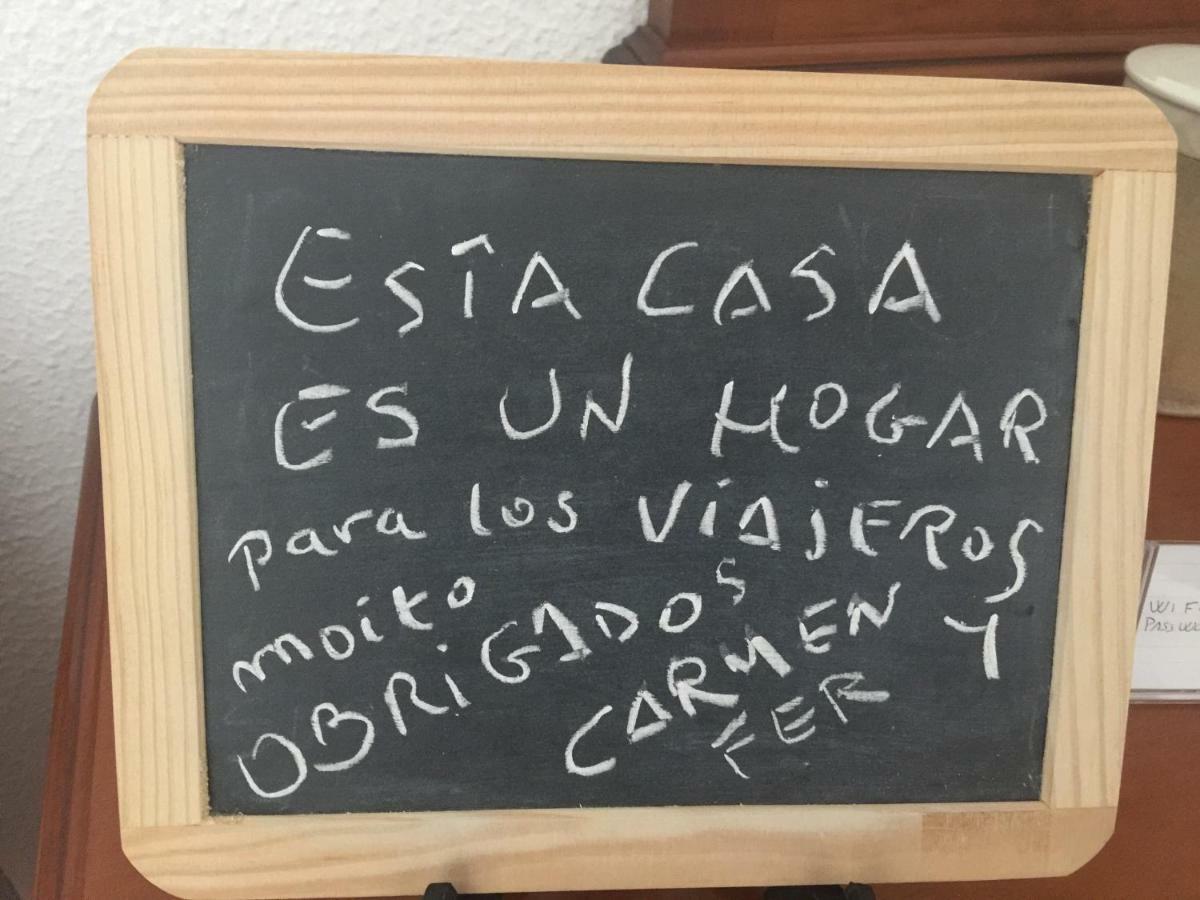 ESTA CASA
ES UN HOGAR
para los VIAJEROS
moito
OBRIGADOS
CARMEN Y
FER
WIF
PASSW